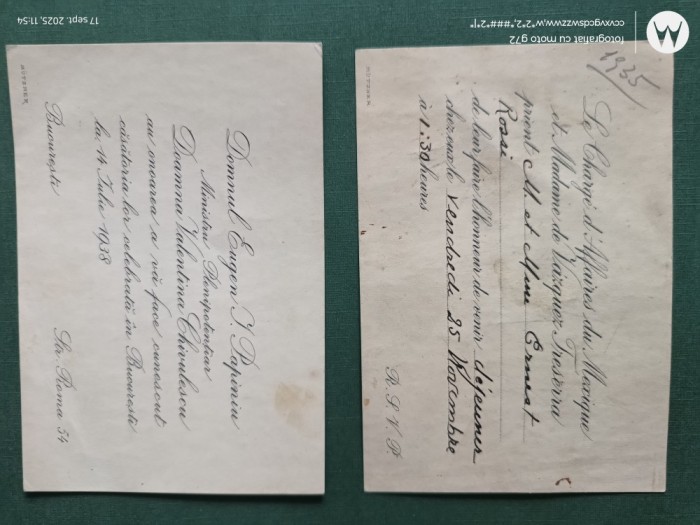 Domnul Eugen I. Papiniu
Ministru Plenipotenţiar
Doamna Valentina Chivulescu
au onoarea a vă face cunoscut
căsătoria lor celebrată în Bucureşti
la 14 Iulie 1938
Bucureşti
Str. Roma 54
1935
Le Chargé d'Affaires du Mexique
et Madame de Vazquez Treserra
prient M. et Mme Ernest
Rossi
de leur faire l'honneur de venir déjeuner
chez eux le vendredi 25 Novembre
à 1:30 heures
R. S. V. P.
fotografiat cu moto g72
ccvxvgcdswzzwww,w,*2*2,*###*2*|*
17 sept. 2025, 11:54